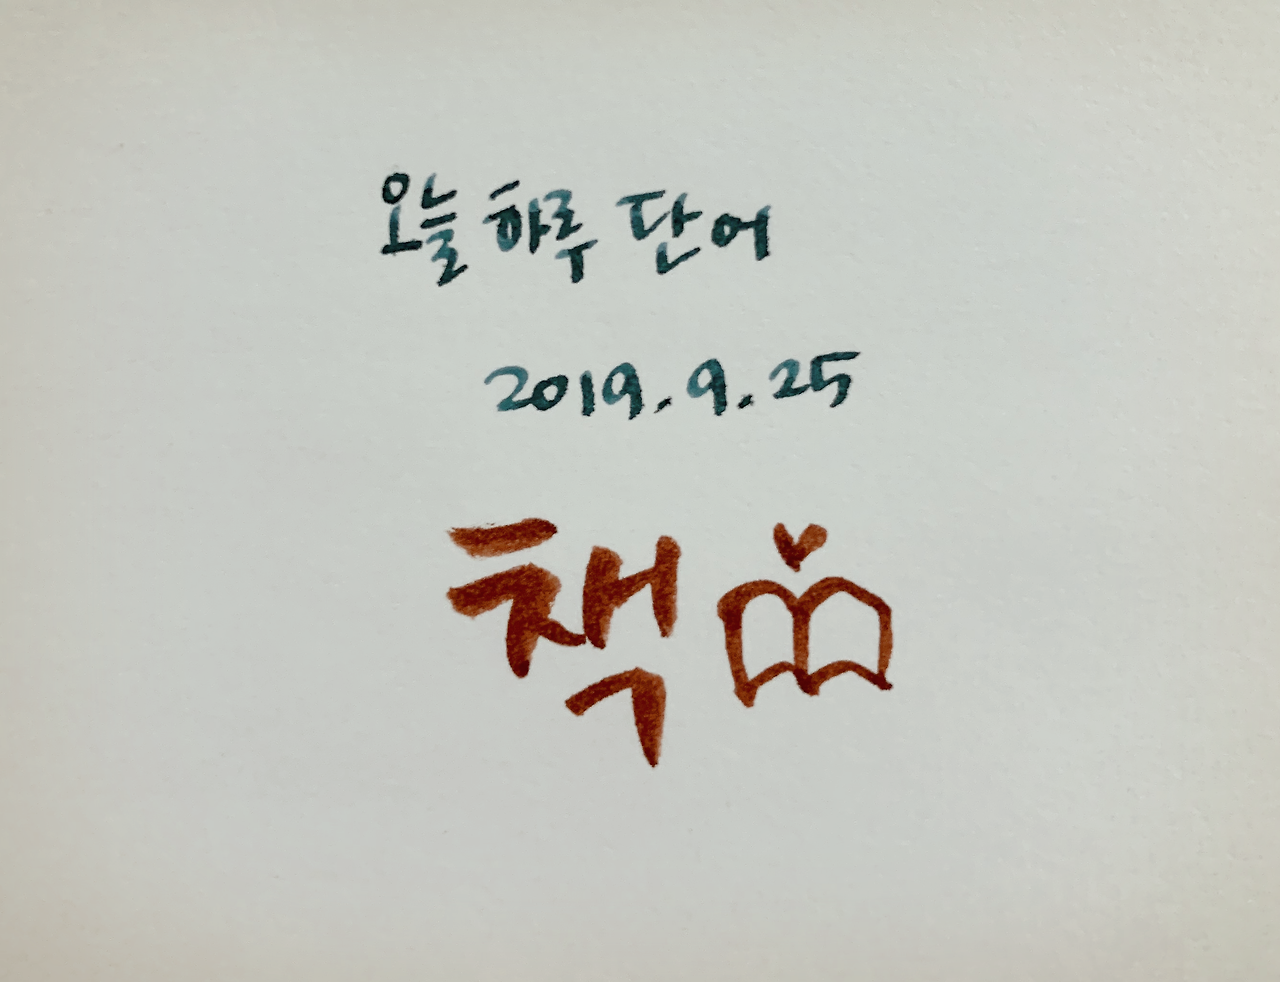 오늘 하루 단어
2019.9.25
책